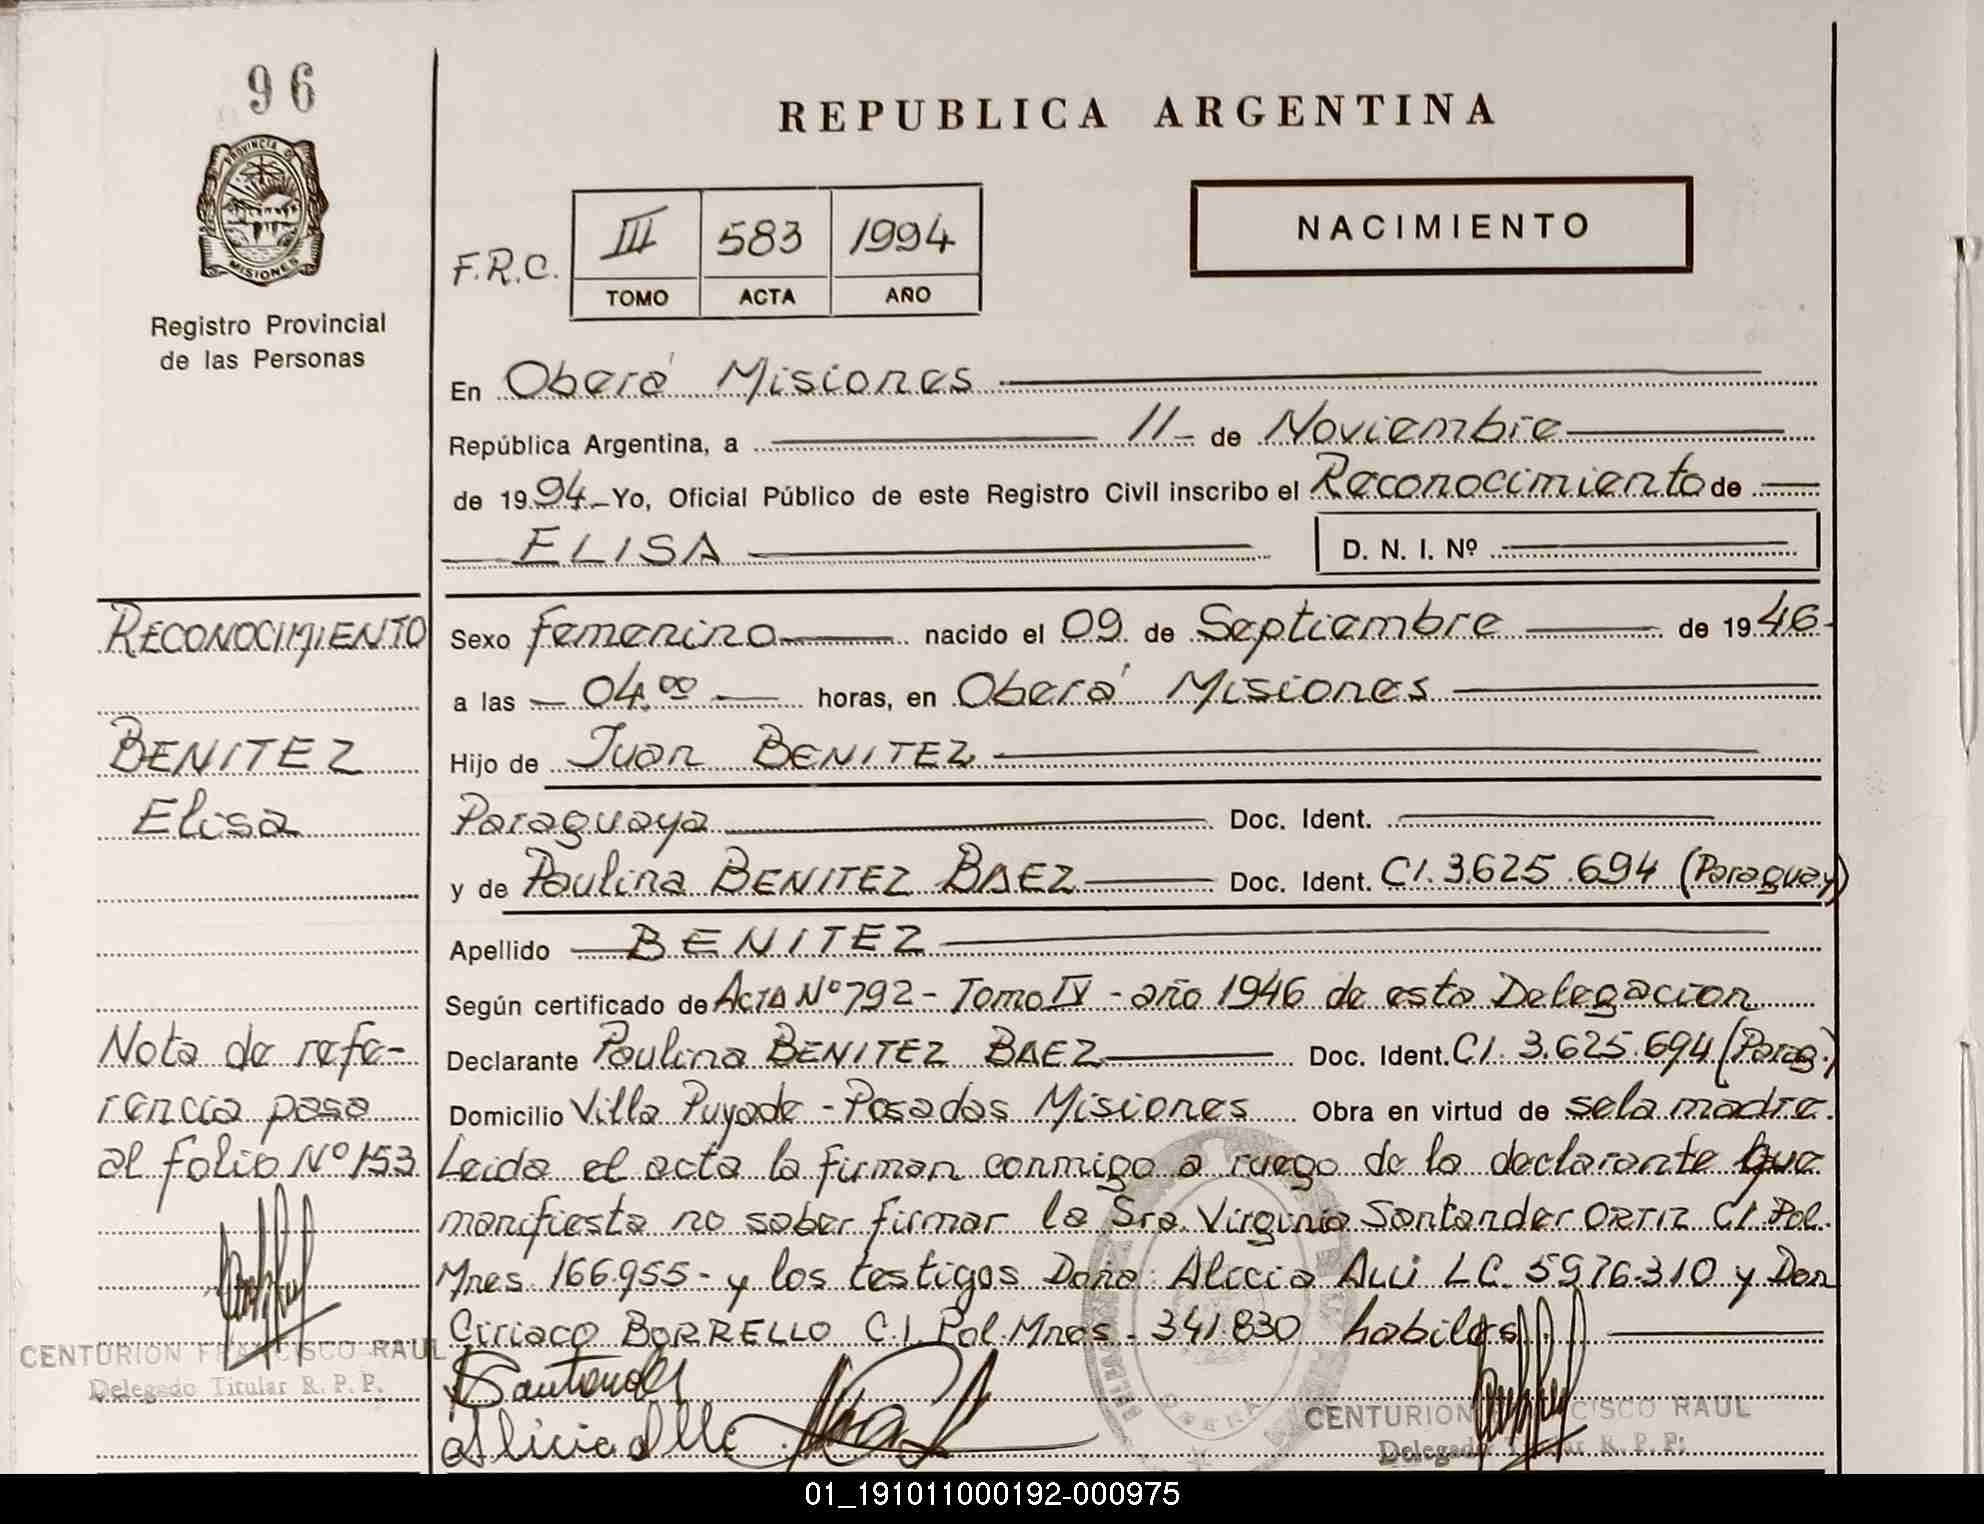 96
PROVINCIA DE
MISIONES
Registro Provincial
de las Personas
REPUBLICA ARGENTINA
NACIMIENTO
F.R.C.
III 583 1994
TOMO ACTA AÑO
En Oberá Misiones
República Argentina, a 11 de Noviembre
de 1994 Yo, Oficial Público de este Registro Civil inscribo el Reconocimiento de
ELISA D. N. I. Nº
Sexo Femenino nacido el 09 de Septiembre de 1946
a las 04.00 horas, en Oberá Misiones
Hijo de Juan BENITEZ
Paraguaya Doc. Ident.
y de Paulina BENITEZ BAEZ Doc. Ident. CI. 3.625.694 (Paraguay)
Apellido BENITEZ
Según certificado de Acta Nº 792 - Tomo IV - año 1946 de esta Delegacion
Declarante Paulina BENITEZ BAEZ Doc. Ident. CI. 3.625.694 (Parag.)
Domicilio Villa Puyade - Posadas Misiones Obra en virtud de se la madre.
Leida el acta la firman conmigo a ruego de la declarante que
manifiesta no saber firmar la Sra. Virginia Santander ORTIZ CI. Pol.
Mnes. 166.955 - y los testigos Doña: Alicia Alli LC. 5976.310 y Don
Ciriaco BORRELLO C.I. Pol. Mnes - 341.830 habiles
Santander
Alicia Alli
OBERA
CENTURION FRANCISCO RAUL
Delegado Titular R. P. P.
RECONOCIMIENTO
BENITEZ
Elisa
Nota de refe-
rencia pasa
al folio Nº 153
CENTURION FRANCISCO RAUL
Delegado Titular R. P. P.
01_191011000192-000975